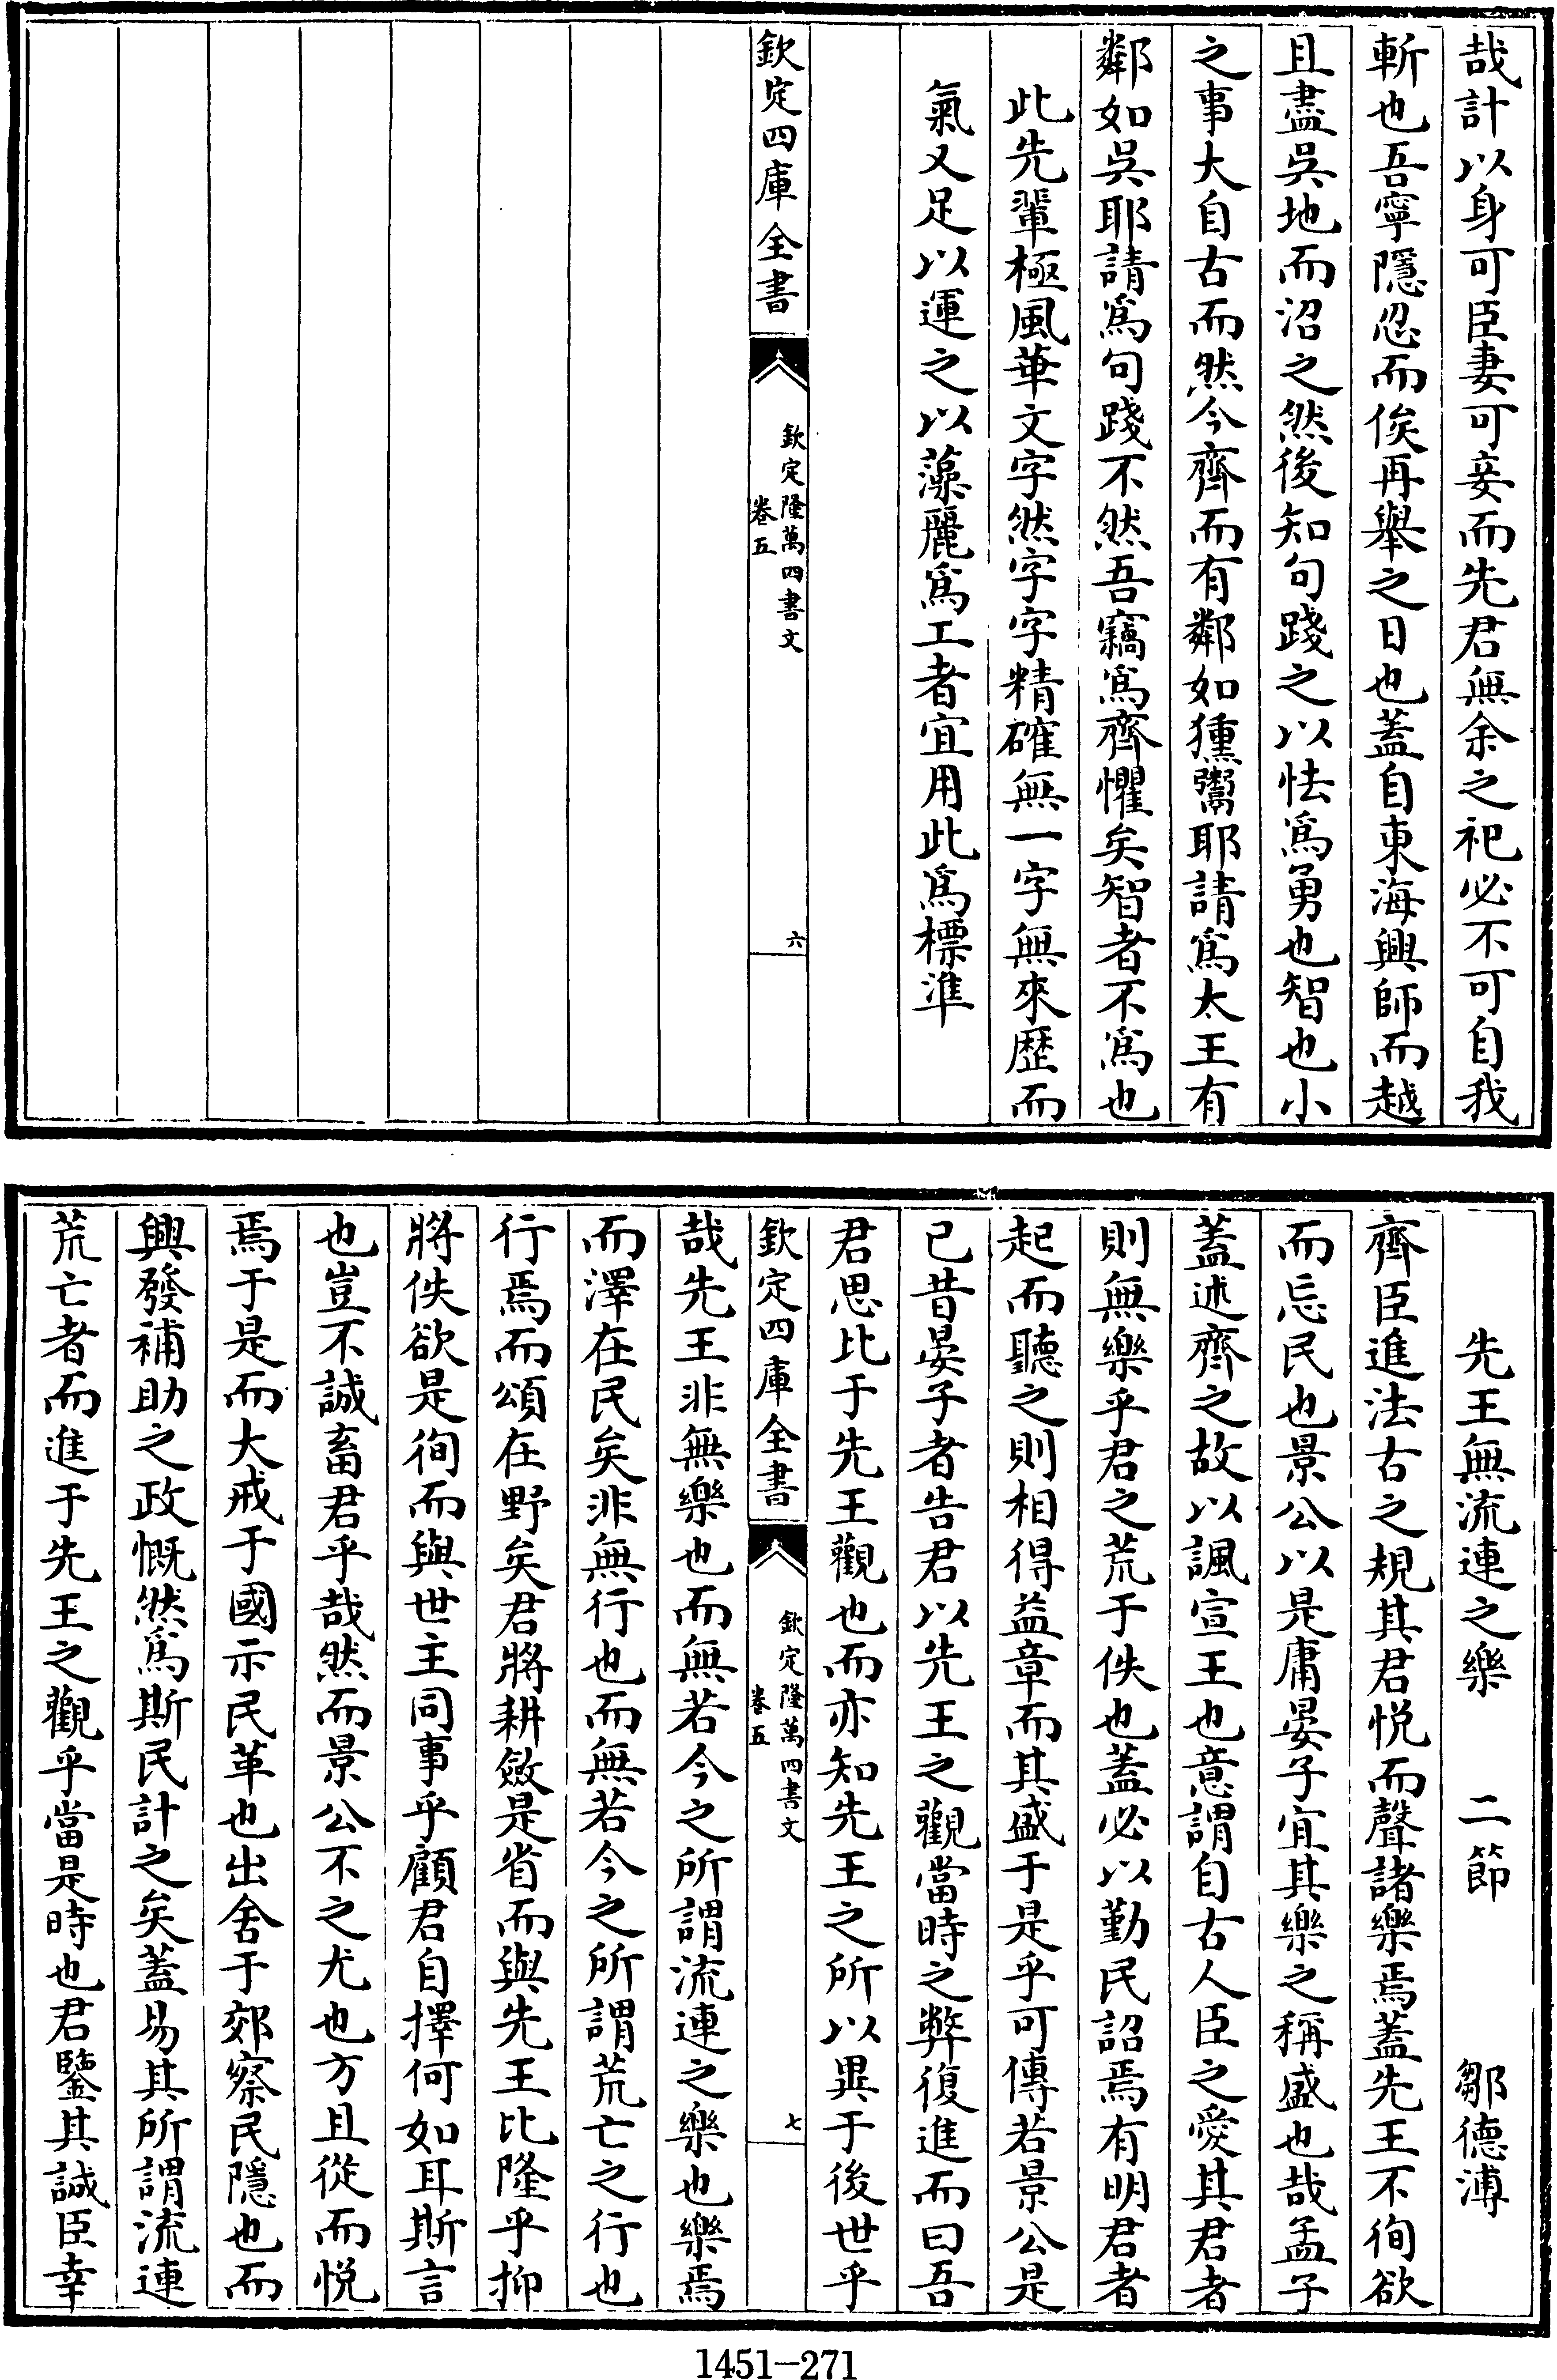 哉計以身可臣妻可妾而先君無余之祀必不可自我
斬也吾寧隱忍而俟再舉之日也蓋自東海興師而越
且盡吳地而沼之然後知句踐之以怯為勇也智也小
之事大自古而然今齊而有鄰如獯鬻耶請為太王有
鄰如吳耶請為句踐不然吾竊為齊懼矣智者不為也
此先輩極風華文字然字字精確無一字無來歷而
氣又足以運之以藻麗為工者宜用此為標準
欽定四庫全書
欽定隆萬四書文
卷五
六
先王無流連之樂 二節 鄒德溥
齊臣進法古之規其君悅而聲諸樂焉蓋先王不徇欲
而忘民也景公以是庸晏子宜其樂之稱盛也哉孟子
蓋述齊之故以諷宣王也意謂自古人臣之愛其君者
則無樂乎君之荒于佚也蓋必以勤民詔焉有明君者
起而聽之則相得益章而其盛于是乎可傳若景公是
已昔晏子者告君以先王之觀當時之弊復進而曰吾
君思比于先王觀也而亦知先王之所以異于後世乎
欽定四庫全書
欽定隆萬四書文
卷五
七
哉先王非無樂也而無若今之所謂流連之樂也樂焉
而澤在民矣非無行也而無若今之所謂荒亡之行也
行焉而頌在野矣君將耕斂是省而與先王比隆乎抑
將佚欲是徇而與世主同事乎顧君自擇何如耳斯言
也豈不誠畜君乎哉然而景公不之尤也方且從而悅
焉于是而大戒于國示民革也出舍于郊察民隱也而
興發補助之政慨然為斯民計之矣蓋易其所謂流連
荒亡者而進于先王之觀乎當是時也君鑒其誠臣幸
1451-271